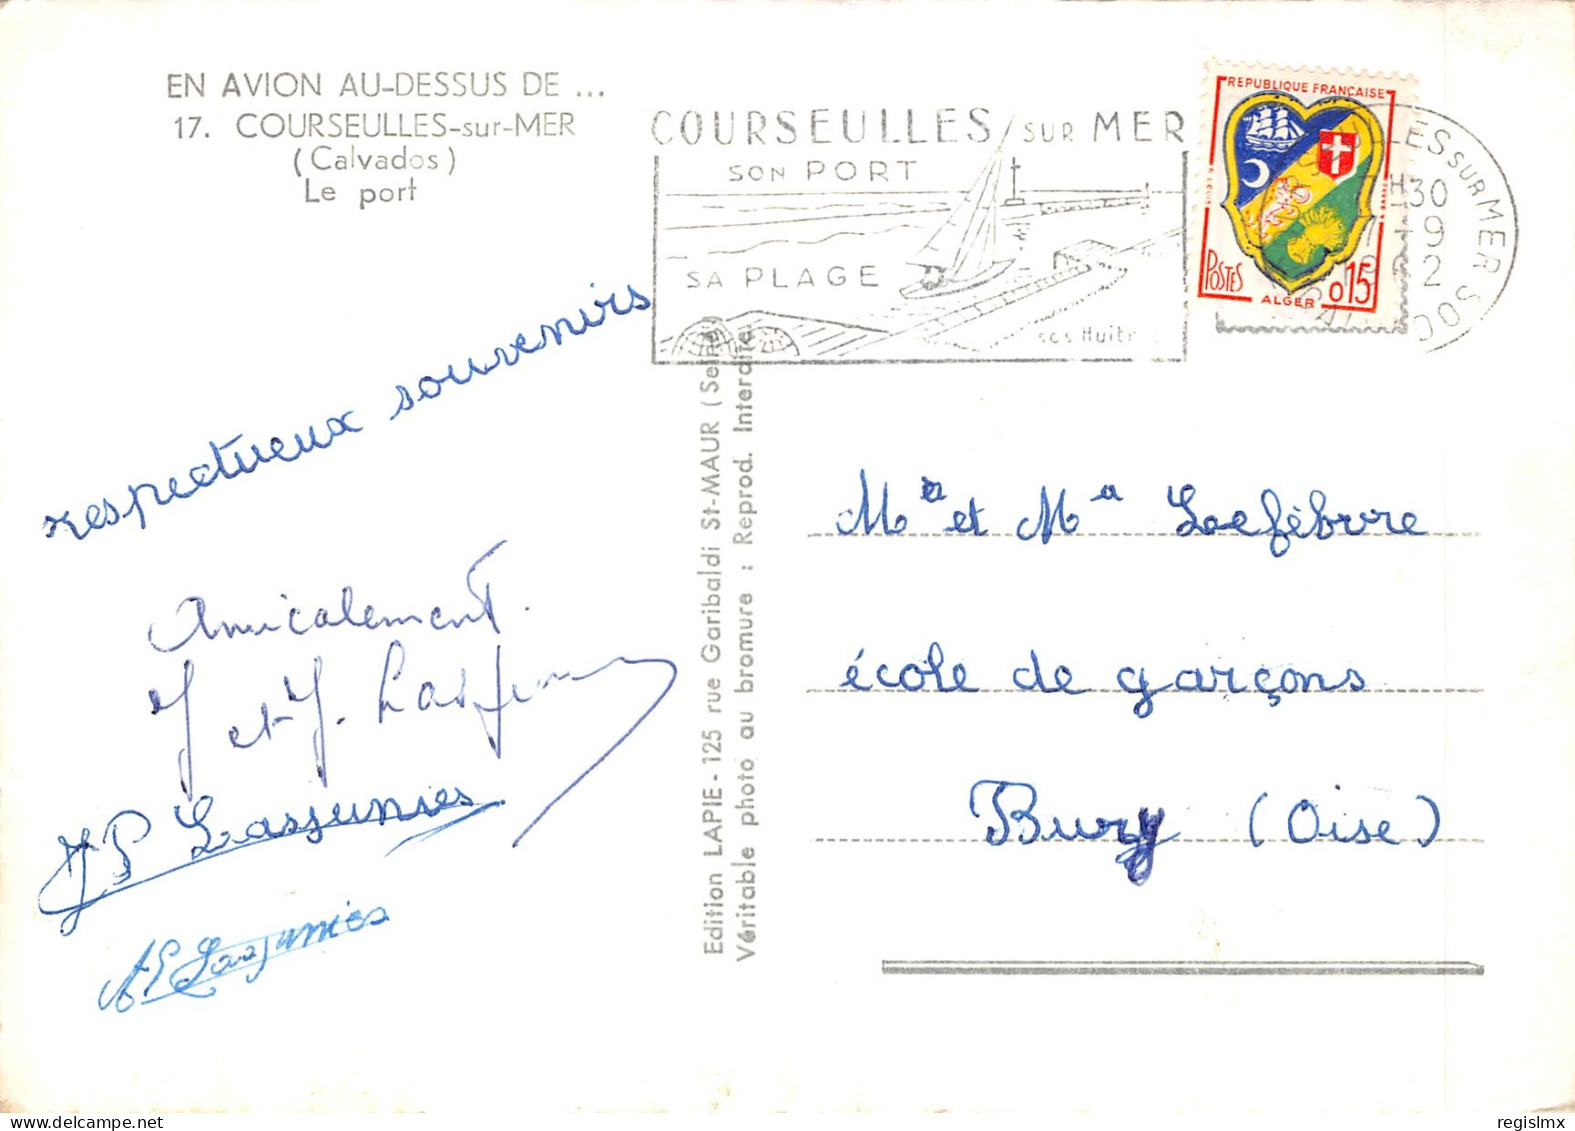 EN AVION AU-DESSUS DE ...
17. COURSEULLES-sur-MER
(Calvados)
Le port
COURSEULLES SUR MER
SON PORT
SA PLAGE
ses Huit
REPUBLIQUE FRANÇAISE
POSTES
ALGER
0,15
LLES SUR MER
H30
9
2
respectueux souvenirs
Amicalement.
J et J.
JP Lassunies
Edition LAPIE - 125 rue Garibaldi St-MAUR (Seine)
Véritable photo au bromure : Reprod. Interdite
Mr et Mme Lefèbvre
école de garçons
Bury (Oise)
regislmx